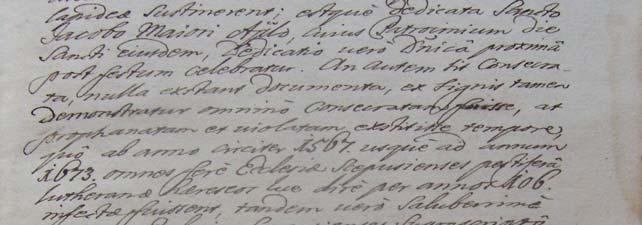 lapideæ sustinerent; estquè Dedicata Sancto
Jacobo Maiori Apĺo, cuius Patrocinium die
Sancti Eiusdem, Dedicatio verò Dńica proximâ
post festum celebratur. An autem sit Consecra-
ta, nulla extant documenta, ex signis tamen
Demonstratur omninò Consecratam fuisse, at
prophanatam et violatam extitisse tempore,
quô ab anno circiter 1567. usque ad annum
1673. omnes ferè Ecclesiæ Scepusienses pestiferâ
Lutheranæ hæreseos lue dirè per annos 106.
infectæ fuissent, tandem verò Saluberrimè